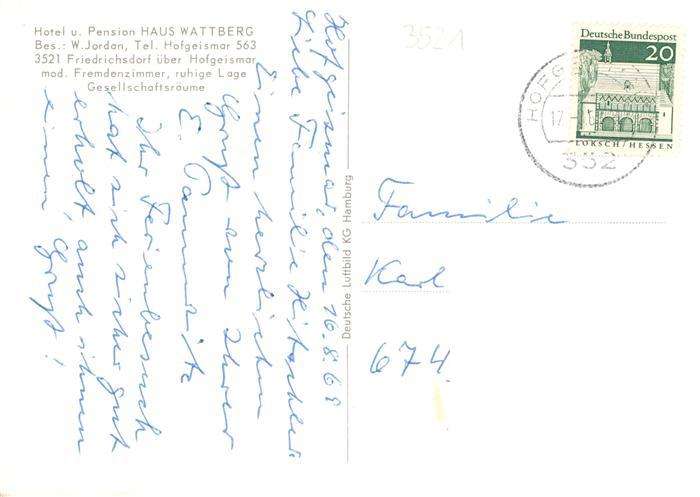 Hotel u. Pension HAUS WATTBERG
Bes.: W. Jordan, Tel. Hofgeismar 563
3521 Friedrichsdorf über Hofgeismar
mod. Fremdenzimmer, ruhige Lage
Gesellschaftsräume
Hofgeismar, den 16.8.69
Liebe Familie
Einen herzlichen
Gruß von Ihrer
E.
Ihr Ferienbesuch
hat sich sicher gut
erholt, auch ihnen
einen Gruß!
Deutsche Luftbild KG Hamburg
3521
Deutsche Bundespost
20
LORSCH/HESSEN
HOFG
17.
352
Familie
Karl
674.